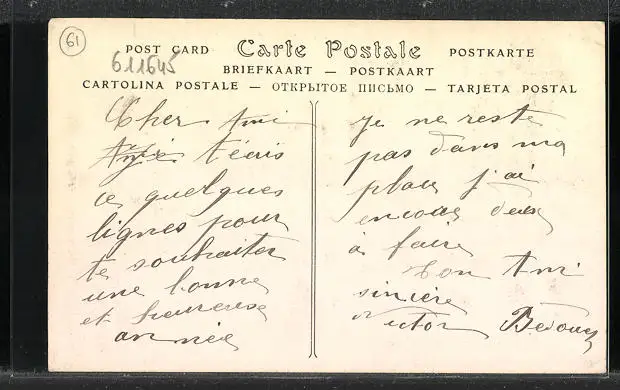 61
POST CARD Carte Postale POSTKARTE
611645
BRIEFKAART — POSTKAART
CARTOLINA POSTALE — ОТКРЫТОЕ ПИСЬМО — TARJETA POSTAL
Cher Ami
t'écris
ces quelques
lignes pour
te souhaiter
une bonne
et heureuse
année
Je ne reste
pas dans ma
place j'ai
encore deux
à faire
Ton Ami
sincère
Victor